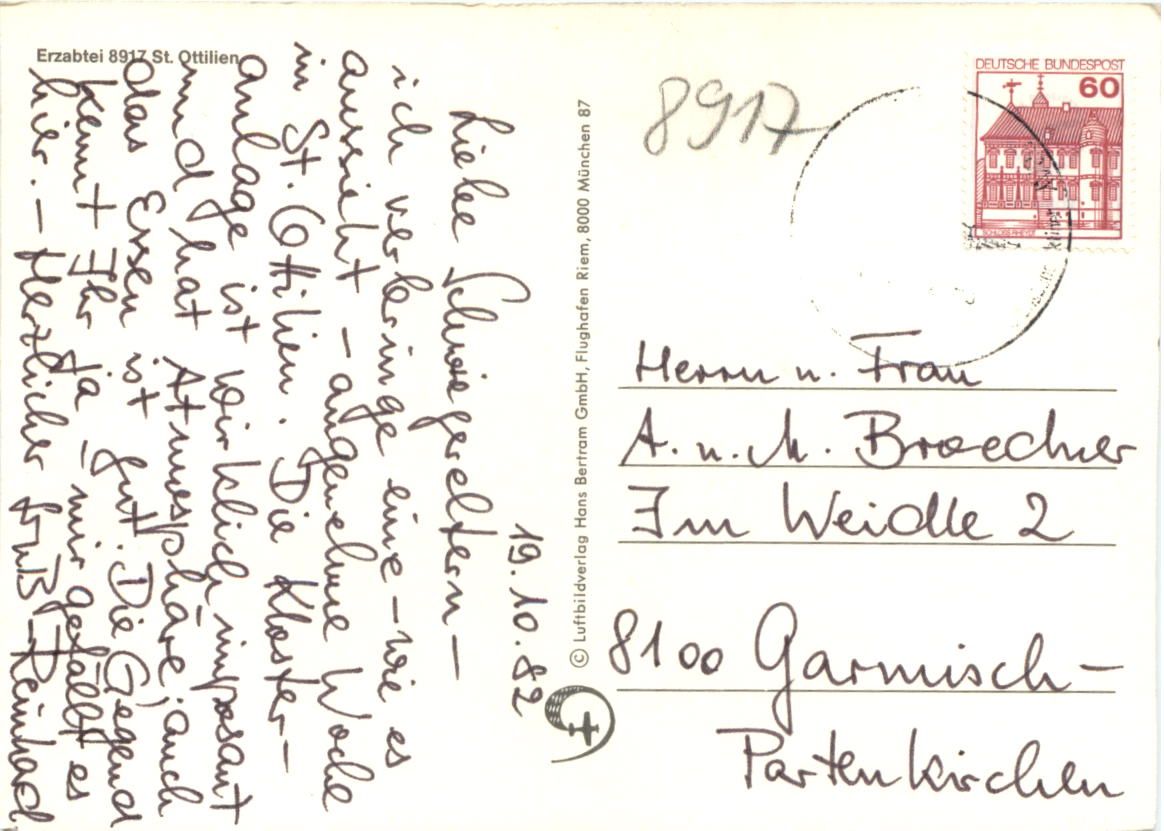 Erzabtei 8917 St. Ottilien
19.10.82
Liebe Schwiegereltern –
ich verbringe eine – wie es
aussieht – angenehme Woche
in St. Ottilien. Die Kloster-
anlage ist wirklich imposant
und hat Atmosphäre; auch
das Essen ist gut. Die Gegend
kennt Ihr ja – mir gefällt es
hier. – Herzlicher Gruß Reinhard
© Luftbildverlag Hans Bertram GmbH, Flughafen Riem, 8000 München 87
8917
DEUTSCHE BUNDESPOST
60
SCHLOSS RHEYDT
Herrn u. Frau
A. u. M. Broechner
Im Weidle 2
8100 Garmisch-
Partenkirchen